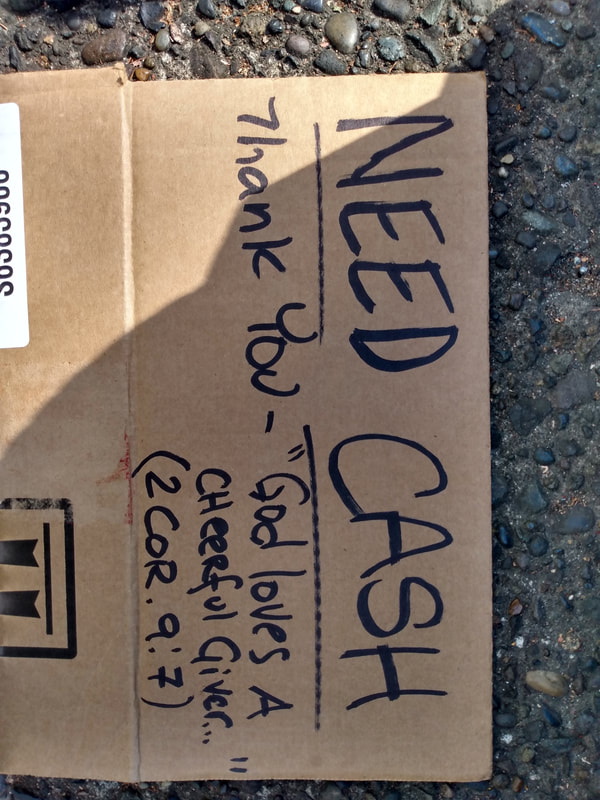 NEED CASH
Thank You - "God loves A
CHeerful Giver..."
(2 COR. 9:7)